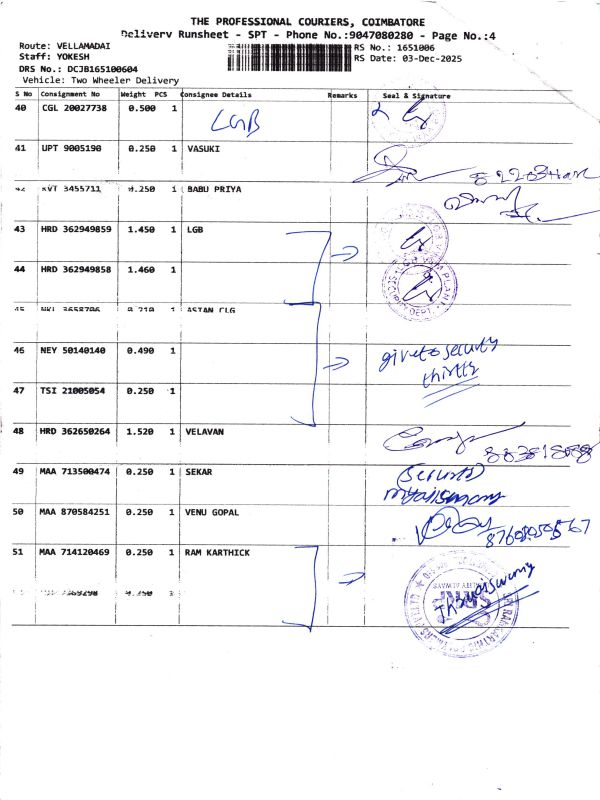 THE PROFESSIONAL COURIERS, COIMBATORE
Delivery Runsheet - SPT - Phone No.:9047080280 - Page No.:4
Route: VELLAMADAI
Staff: YOKESH
DRS No.: DCJB165100604
Vehicle: Two Wheeler Delivery
RS No.: 1651006
RS Date: 03-Dec-2025
S No Consignment No Weight PCS Consignee Details Remarks Seal & Signature
40 CGL 20027738 0.500 1 LGB
41 UPT 9005190 0.250 1 VASUKI
42 KVT 3455711 0.250 1 BABU PRIYA
43 HRD 362949859 1.450 1 LGB
44 HRD 362949858 1.460 1
45 NKL 3658706 0.210 1 ASIAN CLG
46 NEY 50140140 0.490 1
give to security
47 TSI 21005054 0.250 1
48 HRD 362650264 1.520 1 VELAVAN
49 MAA 713500474 0.250 1 SEKAR
(Security)
50 MAA 870584251 0.250 1 VENU GOPAL
51 MAA 714120469 0.250 1 RAM KARTHICK